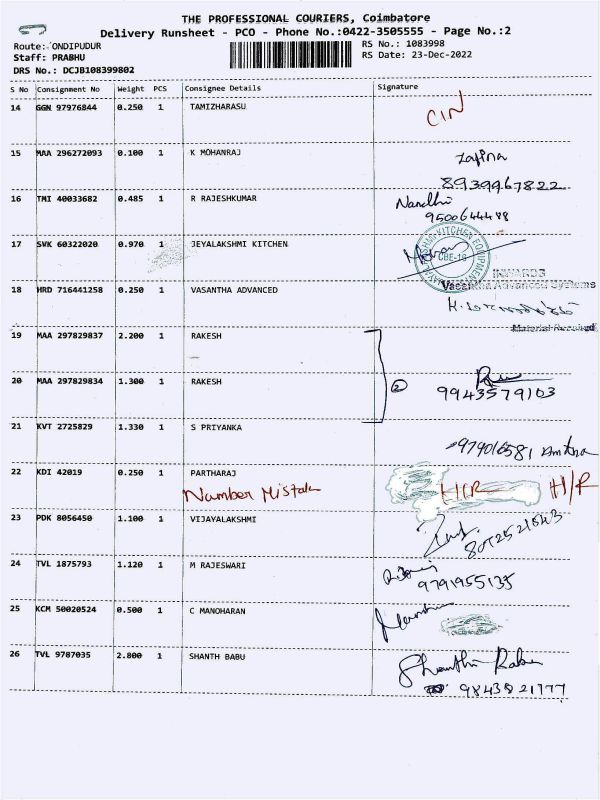 THE PROFESSIONAL COURIERS, Coimbatore
Delivery Runsheet - PCO - Phone No.:0422-3505555 - Page No.:2
Route: ONDIPUDUR
RS No.: 1083998
Staff: PRABHU
RS Date: 23-Dec-2022
DRS No.: DCJB108399802
S No Consignment No Weight PCS Consignee Details Signature
14 GGN 97976844 0.250 1 TAMIZHARASU CIN
15 MAA 296272093 0.100 1 K MOHANRAJ
8939967822
16 TMI 40033682 0.485 1 R RAJESHKUMAR Nandhi
9500644498
17 SVK 60322020 0.970 1 JEYALAKSHMI KITCHEN
CBE-16
INWARDS
18 HRD 716441258 0.250 1 VASANTHA ADVANCED Vasantha Advanced Systems
Material Received
19 MAA 297829837 2.200 1 RAKESH
20 MAA 297829834 1.300 1 RAKESH 2
9943579103
21 KVT 2725829 1.330 1 S PRIYANKA
22 KDI 42019 0.250 1 PARTHARAJ H/R H/R
Number Mistak
23 PDK 8056450 1.100 1 VIJAYALAKSHMI
24 TVL 1875793 1.120 1 M RAJESWARI
9791955135
25 KCM 50020524 0.500 1 C MANOHARAN
26 TVL 9787035 2.800 1 SHANTH BABU Shanthi Babu